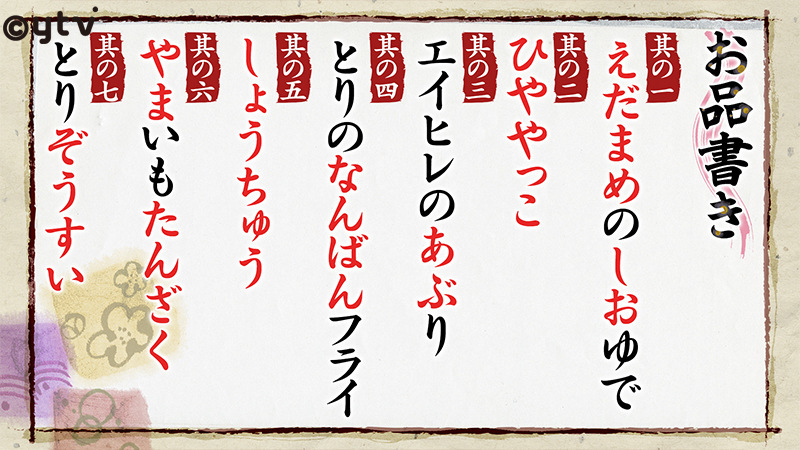 お品書き
其の一
えだまめのしおゆで
其の二
ひややっこ
其の三
エイヒレのあぶり
其の四
とりのなんばんフライ
其の五
しょうちゅう
其の六
やまいもたんざく
其の七
とりぞうすい
©ytv